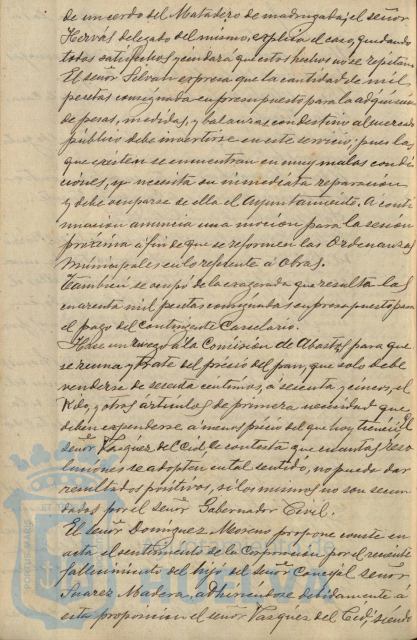 de un cerdo del Matadero de madrugada; el señor
Hervás delegado del mismo, explica el caso, quedando
todos satisfechos y cuidará que estos hechos no se repitan.
El señor Silván expresa que la cantidad de mil
pesetas consignada en presupuesto para la adquisición
de pesas, medidas, y balanzas con destino al mercado
público debe invertirse en este servicio, pues las
que existen se encuentran en muy malas condi-
ciones, y necesita su inmediata reparación
y debe ocuparse de ella el Ayuntamiento. A conti-
nuación anuncia una moción para la sesión
próxima a fin de que se reformen las Ordenanzas
Municipales en lo referente a Obras.
También se ocupó de lo exagerada que resulta las
cuarenta mil pesetas consignadas en presupuesto para
el pago del Contingente Carcelario.
Hace un ruego a la Comisión de Abastos para que
se reuna y trate del precio del pan, que solo debe
venderse de sesenta centimos, a sesenta y cinco, el
Kilo, y otros artículos de primera necesidad que
deben expenderse a menos precio del que hoy tienen; el
señor Vazquez del Cid, le contesta que cuantas reso-
luciones se adopten en tal sentido, no puede dar
resultados positivos, si los mismos no son secun-
dados por el señor Gobernador Civil.
El señor Dominguez Moreno propone conste en
acta el sentimiento de la Corporación por el reciente
fallecimiento del hijo del señor Concejal señor
Suarez Madera, adhiriendose debidamente a
esta proposición el señor Vazquez del Cid, siendo